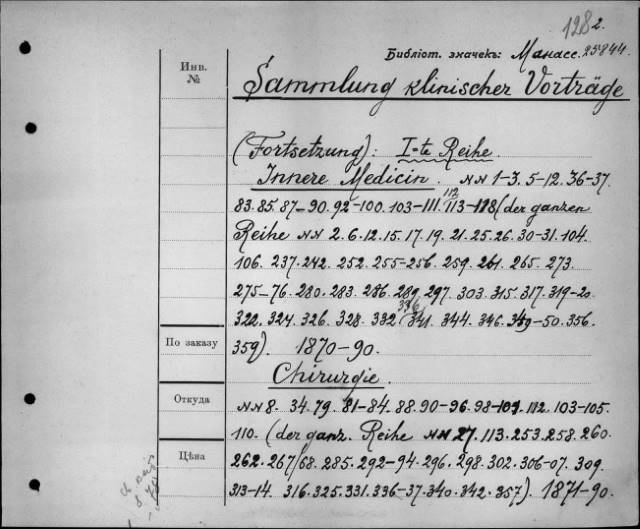 1282.
Библіот. значекъ: Манасс. 25844.
Инв.
№
Sammlung klinischer Vorträge
(Fortsetzung): I-te Reihe.
Innere Medicin. NN 1-3. 5-12. 36-37.
112
83. 85. 87-90. 92-100. 103-111. 113-118 (der ganzen
Reihe NN 2. 6. 12. 15. 17. 19. 21. 25. 26. 30-31. 104.
106. 237. 242. 252. 255-256. 259. 261. 265. 273.
275-76. 280. 283. 286. 289. 297. 303. 315. 317. 319-20.
336
322. 324. 326. 328. 332 341. 344. 346. 349-50. 356.
По заказу
359). 1870-90.
Chirurgie.
Откуда
NN 8. 34. 79. 81-84. 88. 90-96. 98-101. 112. 103-105.
110. (der ganz. Reihe NN 27. 113. 253. 258. 260.
Цѣна
262. 267/68. 285. 292-94. 296. 298. 302. 306-07. 309.
313-14. 316. 325. 331. 336-37. 340. 342. 357). 1871-90.